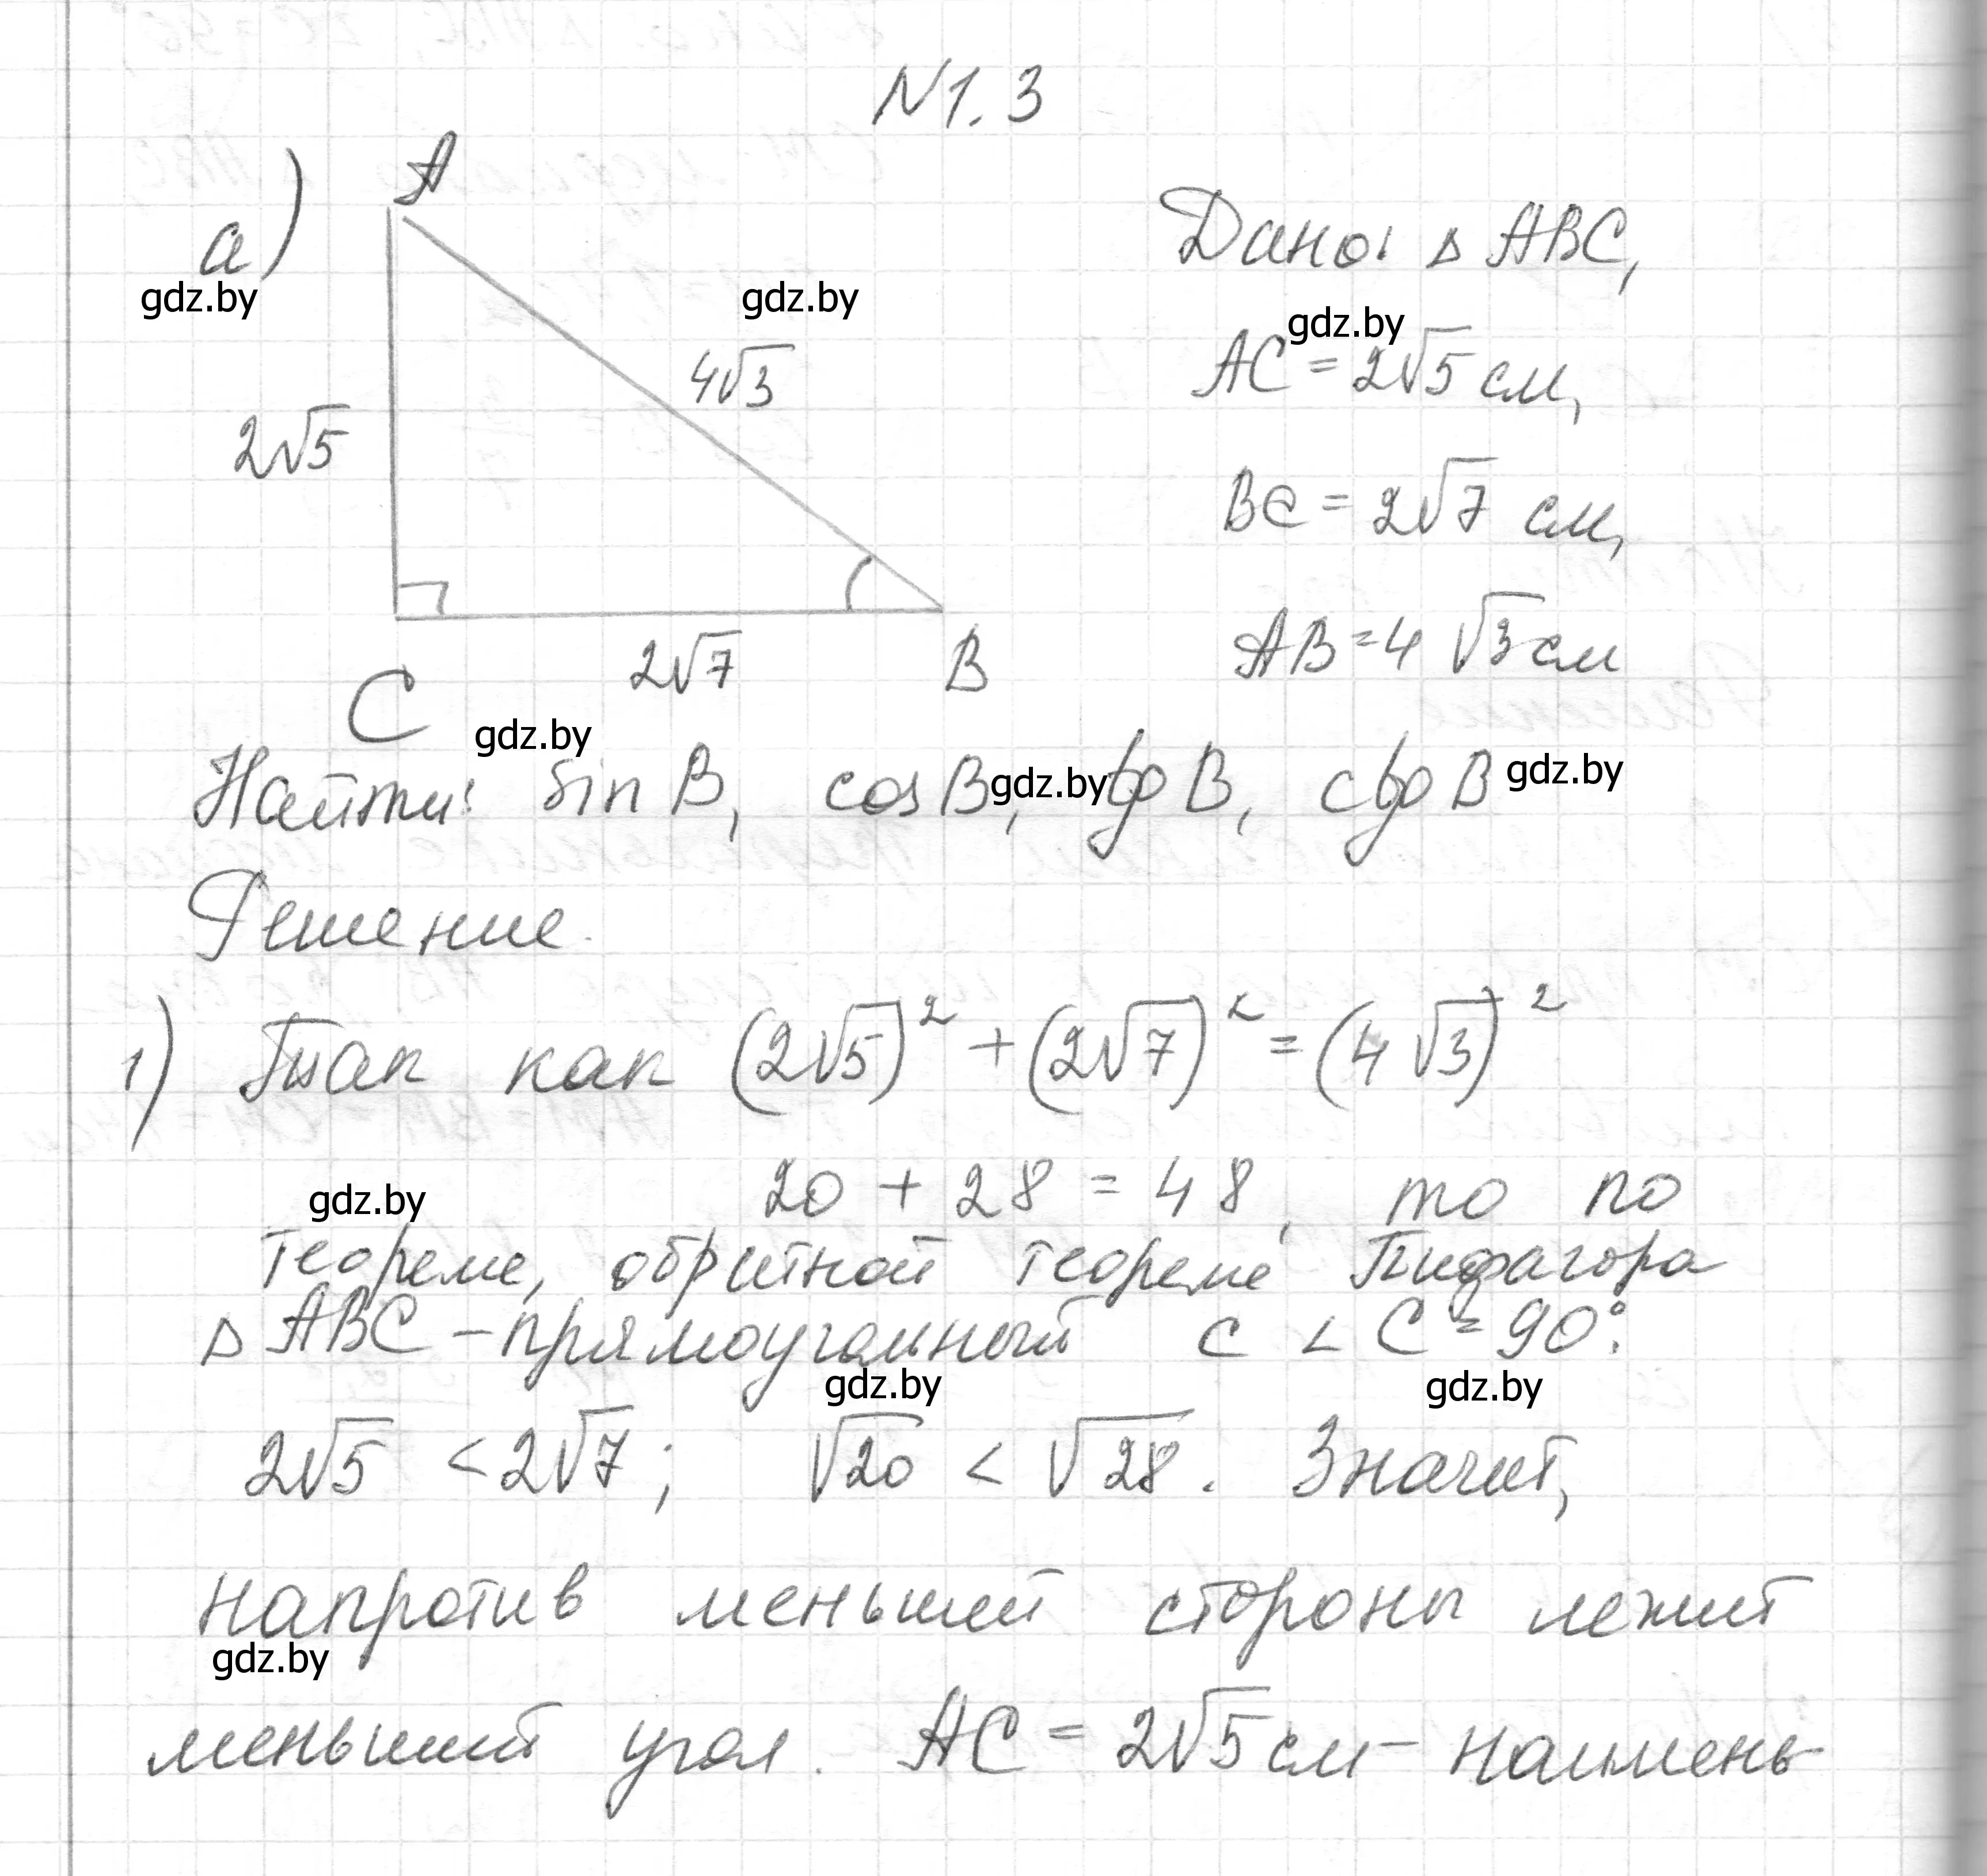 N1.3
A
а)
Дано: △ABC,
gdz.by
gdz.by
gdz.by
AC = 2√5 см,
4√3
2√5
BC = 2√7 см,
AB = 4√3 см
2√7
B
C
gdz.by
Найти: sin B, cos B, tg B, ctg B
gdz.by
gdz.by
Решение.
1) Так как (2√5)² + (2√7)² = (4√3)²
20 + 28 = 48, то по
gdz.by
теореме, обратной теореме Пифагора
△ABC – прямоугольный с ∠C = 90°.
gdz.by
gdz.by
2√5 < 2√7; √20 < √28. Значит,
напротив меньшей стороны лежит
gdz.by
меньший угол. AC = 2√5 см – наимень-